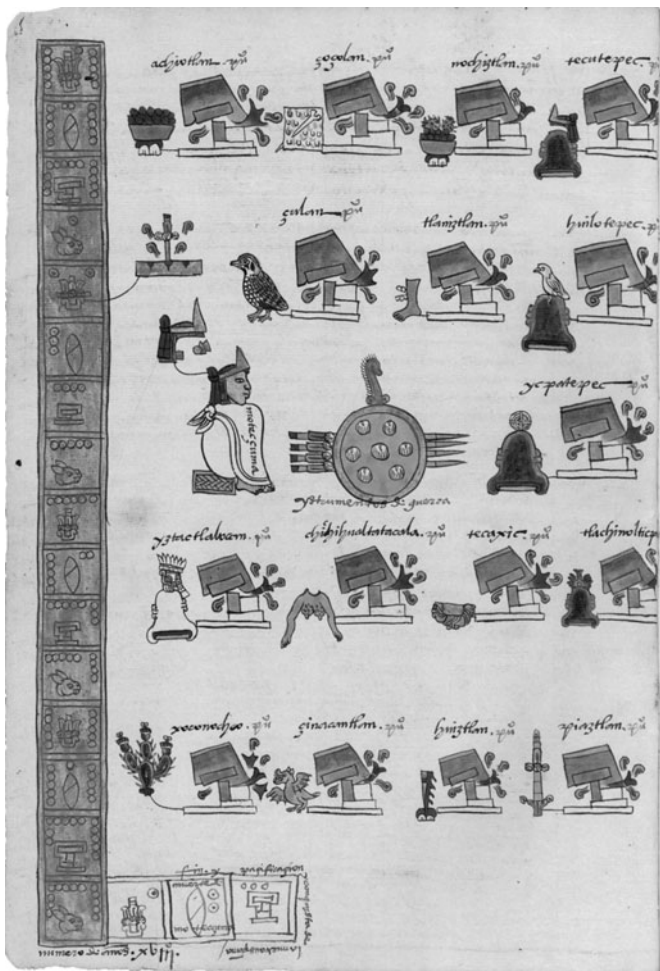 achiotlan. puº
çoçolan. puº
nochiztlan. puº
tecutepec. pu
çulan puº
tlaniztlan. puº
huilotepec. pu
motecçuma
ystrumentos de guerra
ycpatepec puº
yztactlalocan. puº
chichihualtatacala. puº
tecaxic. puº
tlachinolticp
xoconochco. puº
çinacantlan. puº
huiztlan. puº
piaztlan. puº
fin y
muerte
pasificaçion
y conquista de
la nueva españa
numero de años. XVIII.